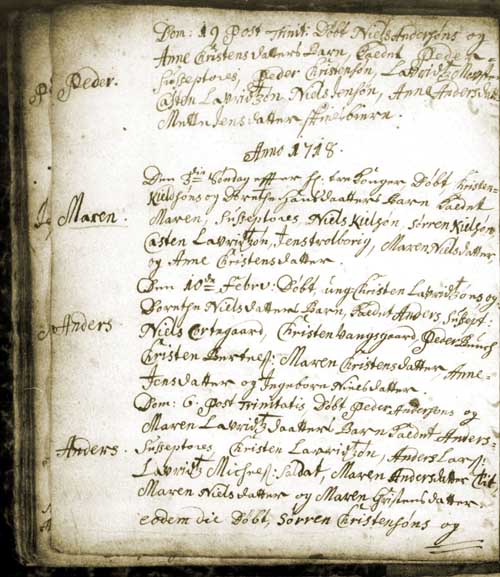 Dom: 19 Post Trinit: Døbt Niels Andersøns og
Anne Christensdatters Barn, Kaldet Peder
Peder. Susseptores, Peder Christensøn, Lavridz
Casten Lavridzøn, Niels Jensøn, Anne Andersdatter
Mette Jensdatter
Anno 1718.
Den 3die Søndag effter h: tre Konger, Døbt Christen
Kieldsøns og Dorethe Barn Kaldet
Maren. Maren, Susseptores, Niels Kielsøn, Sørren Kielsøn
Casten Lavridzøn, Jens, Maren Nielsdatter
og Anne Christensdatter.
Den 10de Febrv: Døbt, ung Christen Lavridzøns og
Dorethe Nielsdatters Barn, Kaldet Anders, Sussept:
Anders Niels Ortegaard, Christen Vangsgaard, Peder
Christen Bertels: Maren Christensdatter, Anne
Jensdatter og Ingeborn Nielsdatter
Dom: 6: Post Trinitatis Døbt Peder Andersøns og
Maren Lavridzdaatters Barn Kaldet Anders
Anders. Susseptores Christen Lavridzøn, Anders Lars:
Lavridz Michels: Soldat, Maren Andersdatter
Maren Nielsdatter og Maren Christensdatter
eodem die Døbt, Sørren Christensøns og